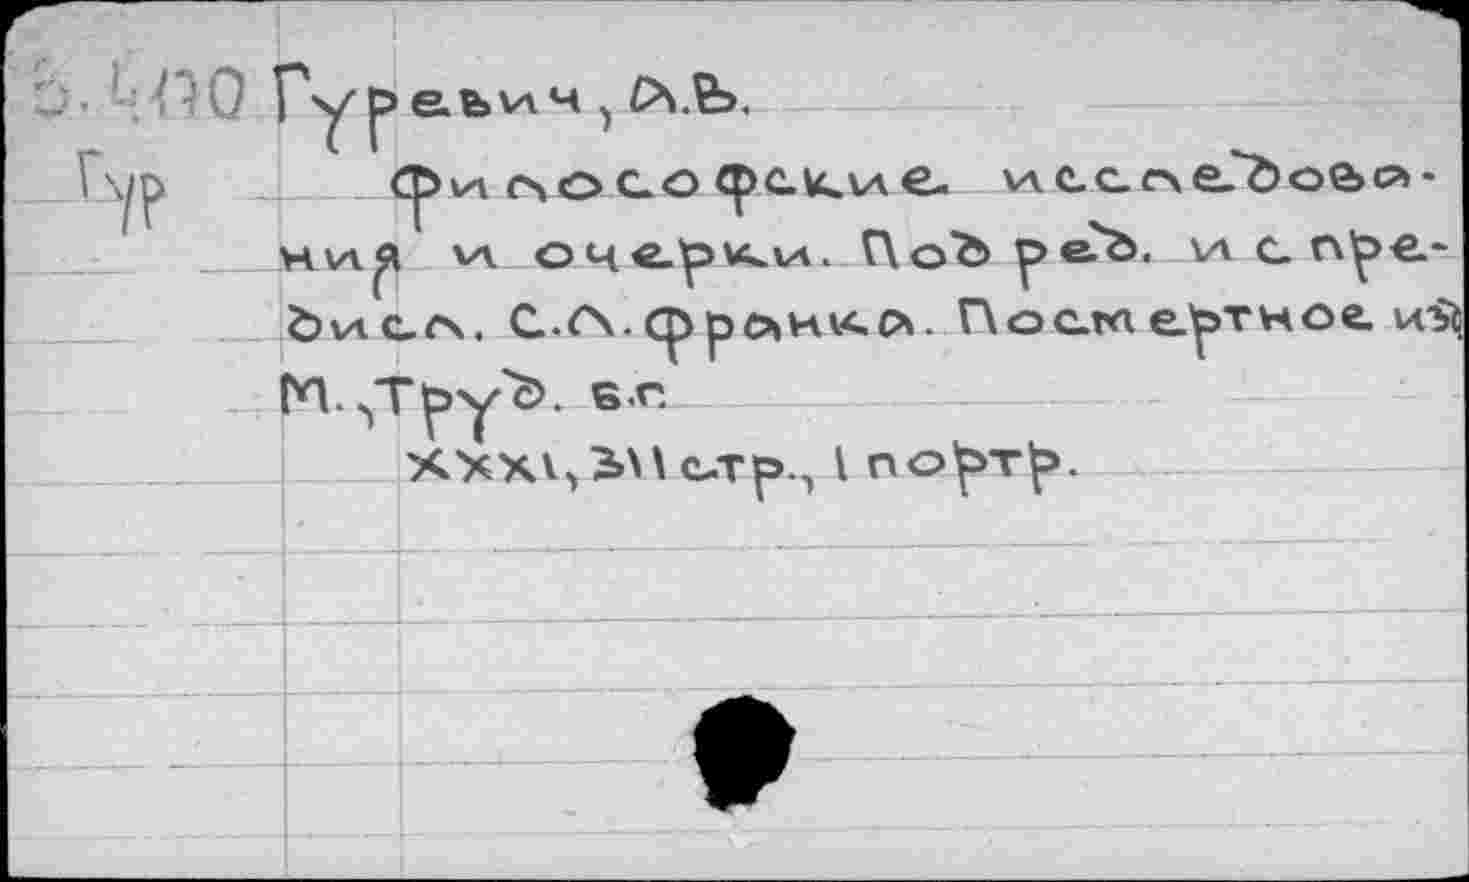 Гуревич, А.В.
Гур
Философские исследова-
ния и очерки. Под ред. и с пре-
дисл. С.Л. Франка. Посмертное изд
М., Труд. б.г.
XXXI, 311 стр., 1 портр.